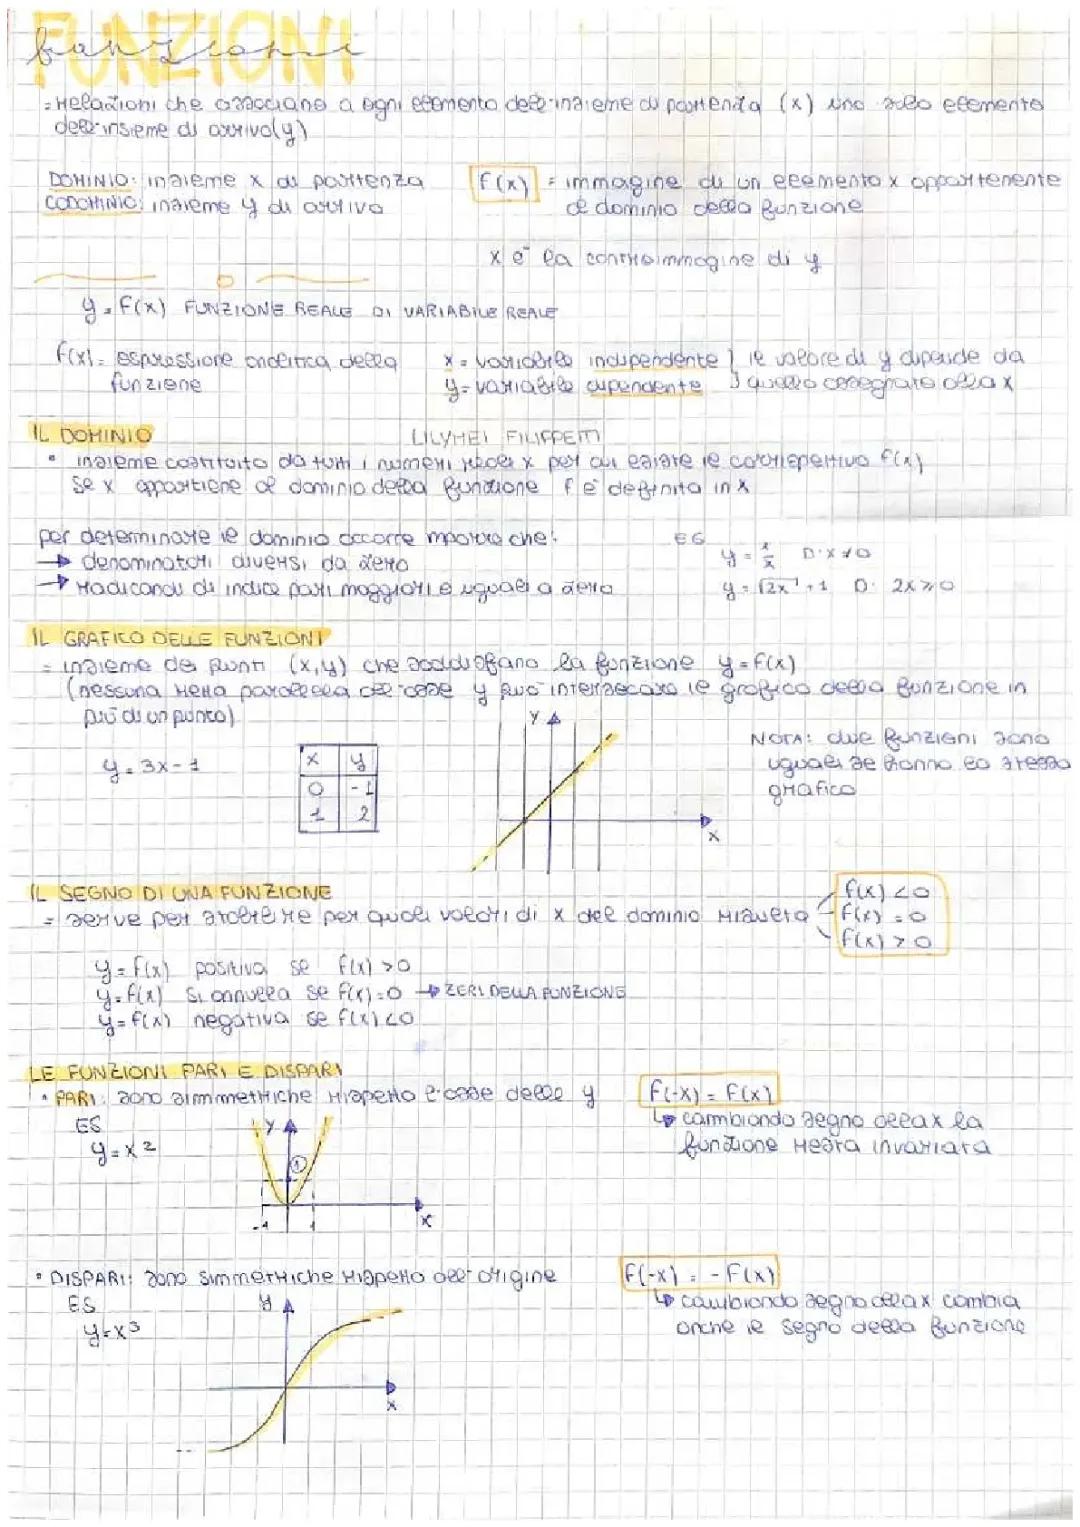 FUNZIONI
funzioni
= relazioni che associano a ogni elemento dell'insieme di partenza (x) uno solo elemento
dell'insieme di arrivo (y)
DOMINIO: insieme x di partenza
CODOMINIO: insieme y di arrivo
f(x) = immagine di un elemento x appartenente
al dominio della funzione
x è la controimmagine di y
y = f(x) FUNZIONE REALE DI VARIABILE REALE
f(x) = espressione analitica della
funzione
x = variabile indipendente } il valore di y dipende da
y = variabile dipendente } quello assegnato alla x
IL DOMINIO
LILYMEI FILIPPETTI
• insieme costituito da tutti i numeri reali x per cui esiste il corrispettivo f(x)
se x appartiene al dominio della funzione f è definita in x
per determinare il dominio occorre imporre che:
→ denominatori diversi da zero
→ radicandi di indice pari maggiori e uguali a zero
ES
D: x ≠ 0
D: 2x ⩾ 0
IL GRAFICO DELLE FUNZIONI
= insieme dei punti (x,y) che soddisfano la funzione y = f(x)
(nessuna retta parallela all'asse y può intersecare il grafico della funzione in
più di un punto)
y = 3x - 1
x y
0 -1
1 2
y
x
NOTA: due funzioni sono
uguali se hanno lo stesso
grafico
IL SEGNO DI UNA FUNZIONE
= serve per stabilire per quali valori di x del dominio risulta
f(x) < 0
f(x) = 0
f(x) > 0
y = f(x) positiva se f(x) > 0
y = f(x) si annulla se f(x) = 0 → ZERI DELLA FUNZIONE
y = f(x) negativa se f(x) < 0
LE FUNZIONI PARI E DISPARI
• PARI: sono simmetriche rispetto l'asse delle y
f(-x) = f(x)
↳ cambiando segno alla x la
funzione resta invariata
ES
y = x²
y
1
-1 1
x
• DISPARI: sono simmetriche rispetto all'origine
f(-x) = - f(x)
↳ cambiando segno alla x cambia
anche il segno della funzione
ES
y = x³
y
x